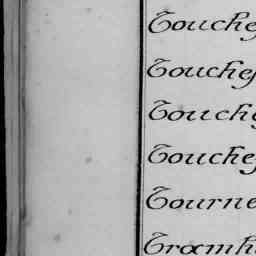 Touches
Touches
Touche
Touches
Tourne
Tramh